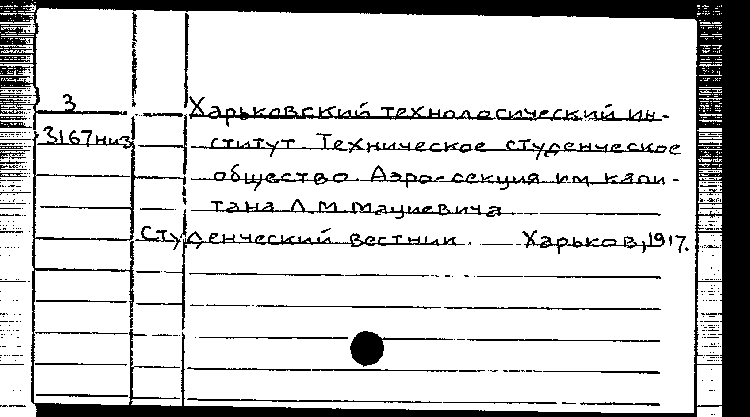 З
3167низ
Харьковский технологический ин-
ститут Техническое студенческое
общество Аэро-секция им капи-
тана Л М Мациевича
Студенческий вестник. Харьков, 1917.